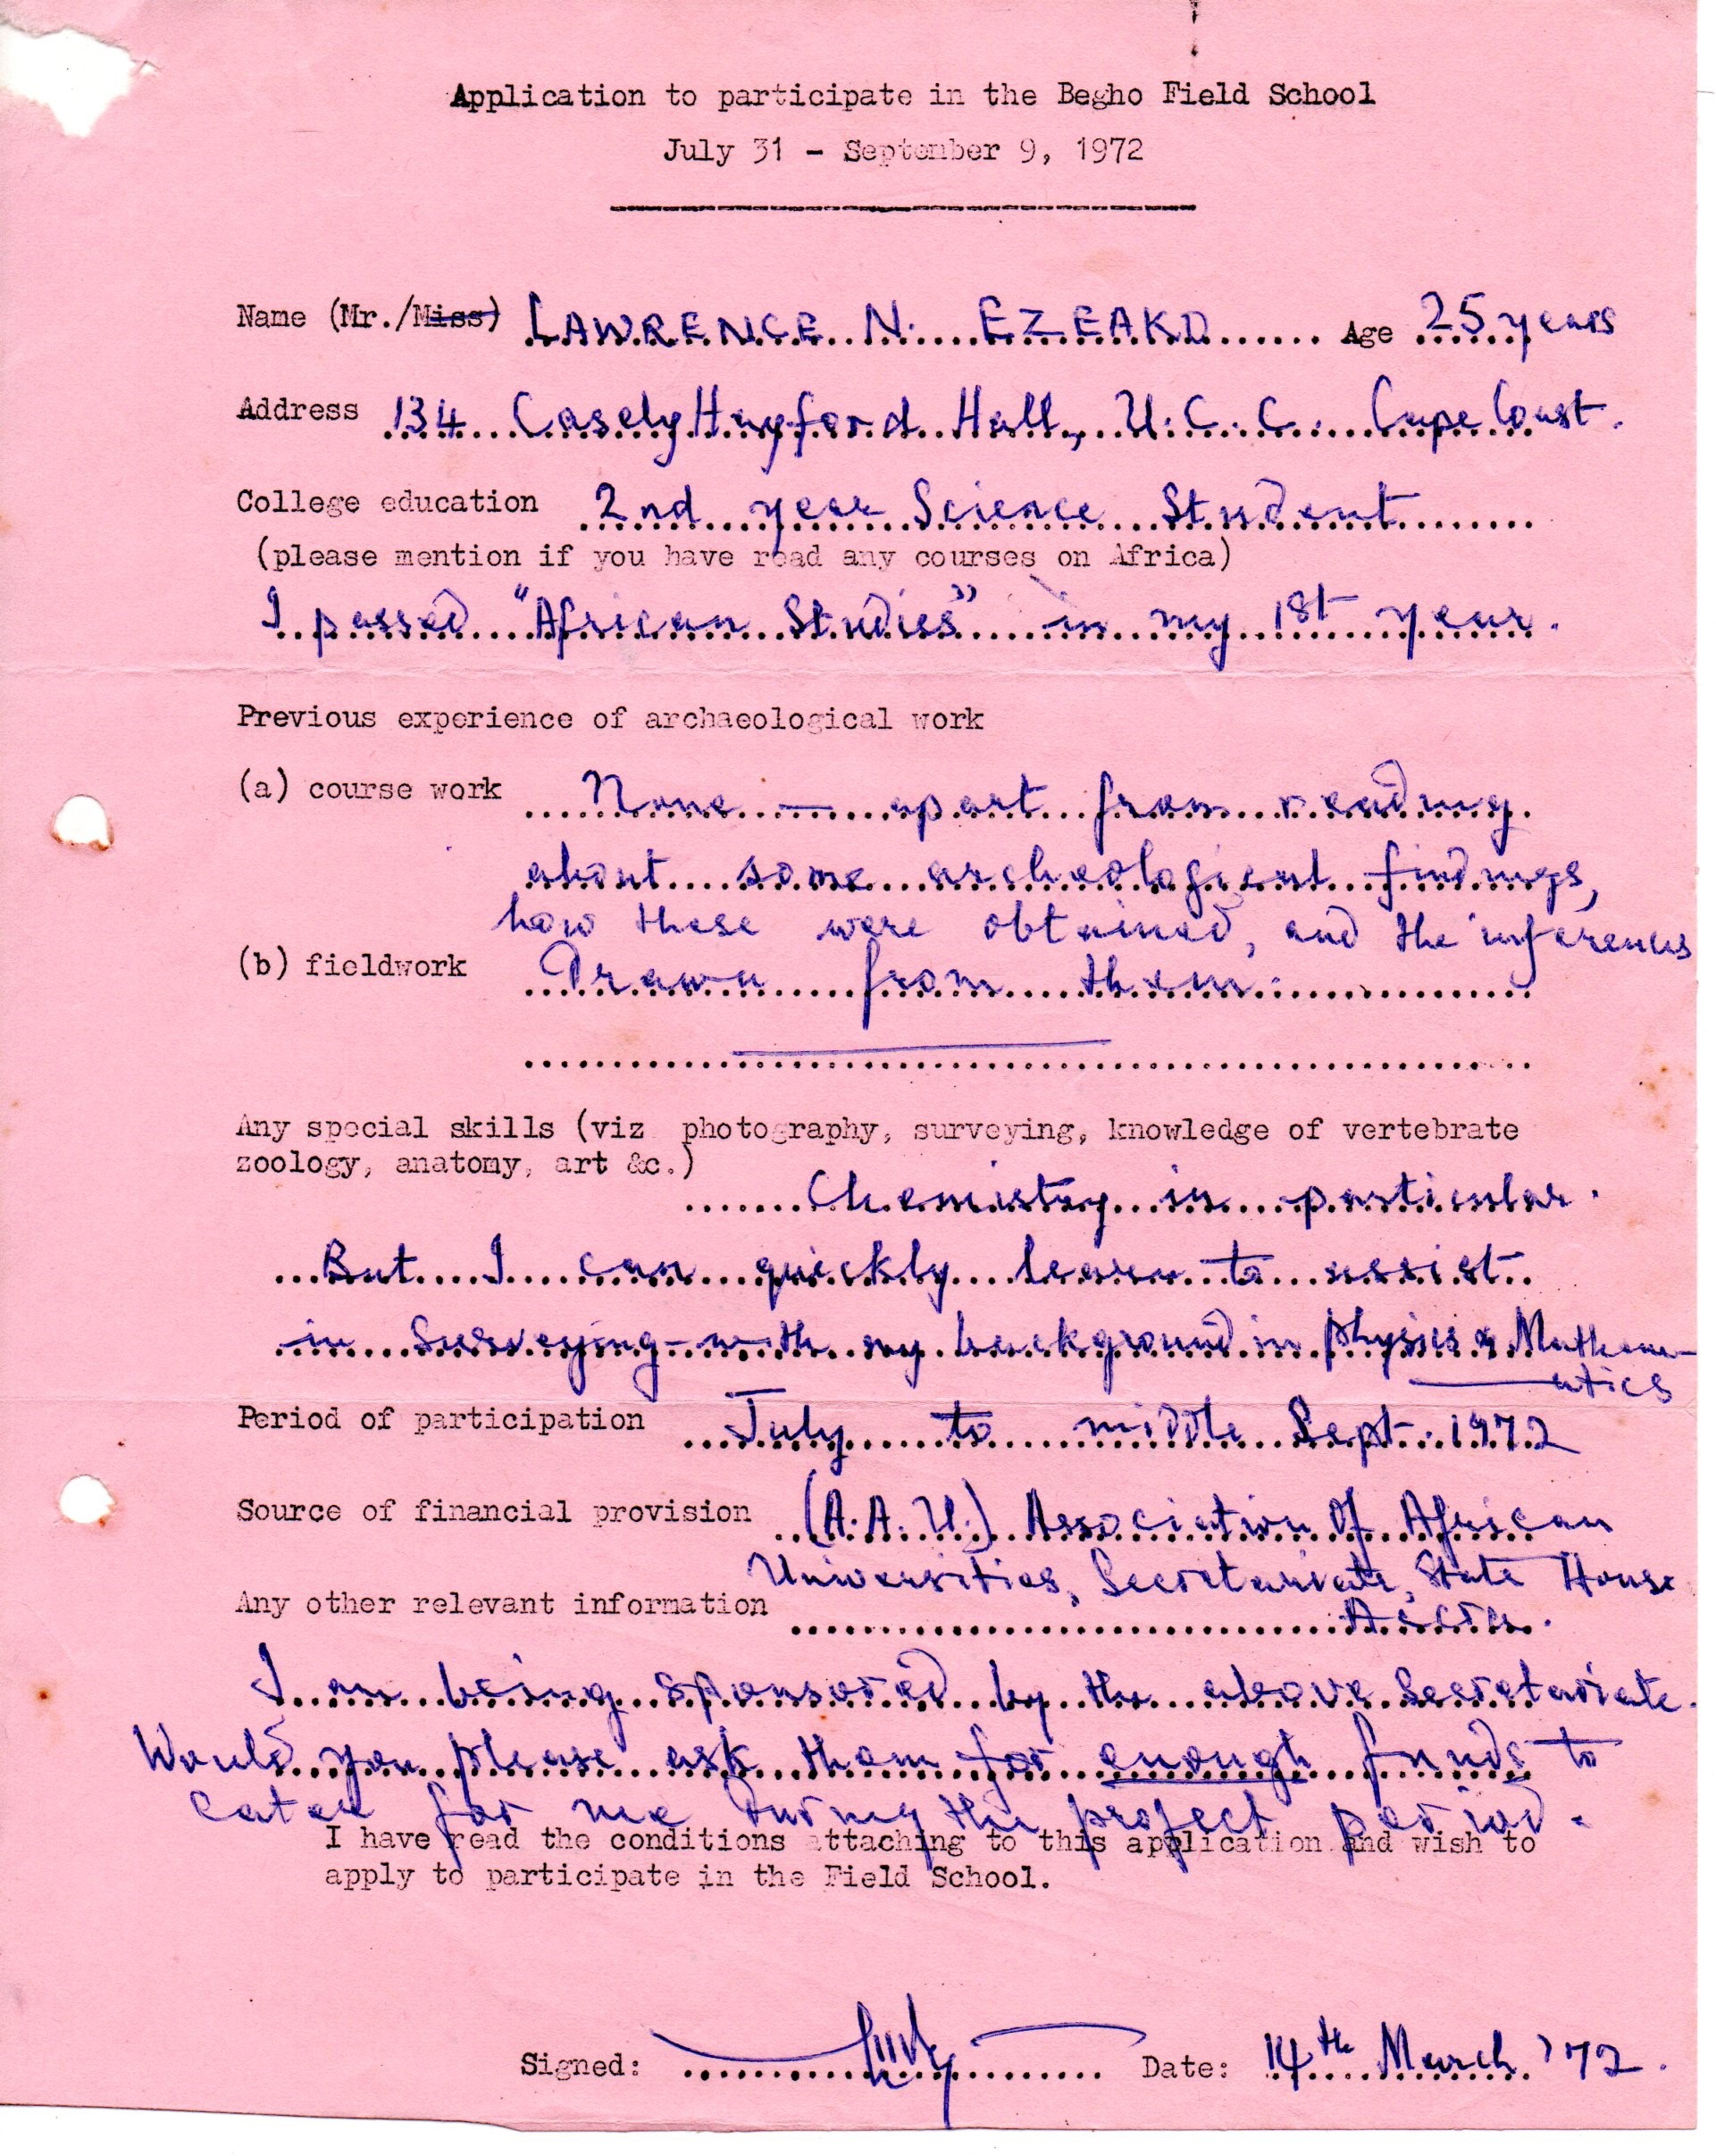 Application to participate in the Begho Field School
July 31 - September 9, 1972
Name (Mr./Miss) LAWRENCE N. EZEAKO Age 25 years
Address 134 Casely Hayford Hall, U.C.C. Cape Coast.
College education 2nd year Science Student
(please mention if you have read any courses on Africa)
I passed "African Studies" in my 1st year.
Previous experience of archaeological work
(a) course work None — apart from reading
about some archeological findings,
how these were obtained, and the inferences
(b) fieldwork Drawn from them.
Any special skills (viz photography, surveying, knowledge of vertebrate
zoology, anatomy, art &c.)
Chemistry in particular.
But I can quickly learn to assist
in Surveying - with my background in physics & Mathem-
atics
Period of participation July to middle Sept. 1972
Source of financial provision (A.A.U.) Association Of African
Universities, Secretariate, State House
Any other relevant information Accra.
I am being sponsored by the above Secretariate.
Would you please ask them for enough funds to
cater for me during the project period.
I have read the conditions attaching to this application and wish to
apply to participate in the Field School.
Signed: Date: 14th March '72.